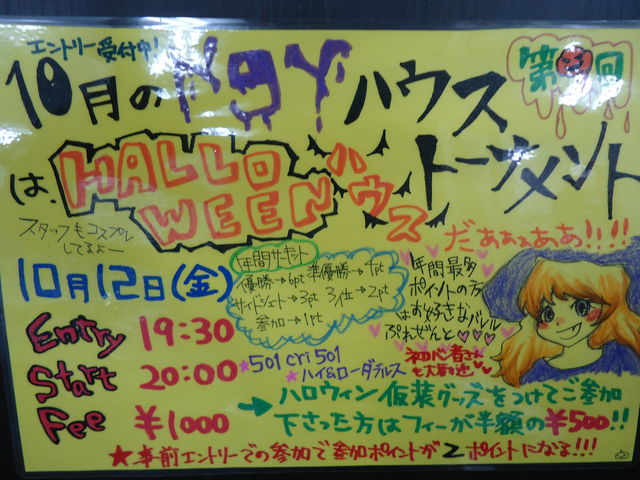 エントリー受付中!
10月のNgyハウス
トーナメント
第 回
は、HALLOWEENハウス
だぁぁぁああ!!!!
スタッフもコスプレ
してるよー
10月12日(金)
Entry 19:30
Start 20:00
Fee ¥1000
年間サーキット
優勝→6pt 準優勝→4pt
サイドシュート→3pt 3位→2pt
参加→1pt
年間最多
ポイントの方
はお好きなバレル
ぷれぜんと♡♡♡
★501 cri 501
★ハイ&ローダブルス
初心者さん
も大歓迎
→ハロウィン仮装グッズをつけてご参加
下さった方はフィーが半額の¥500!!
★事前エントリーでの参加で参加ポイントが2ポイントになる!!!